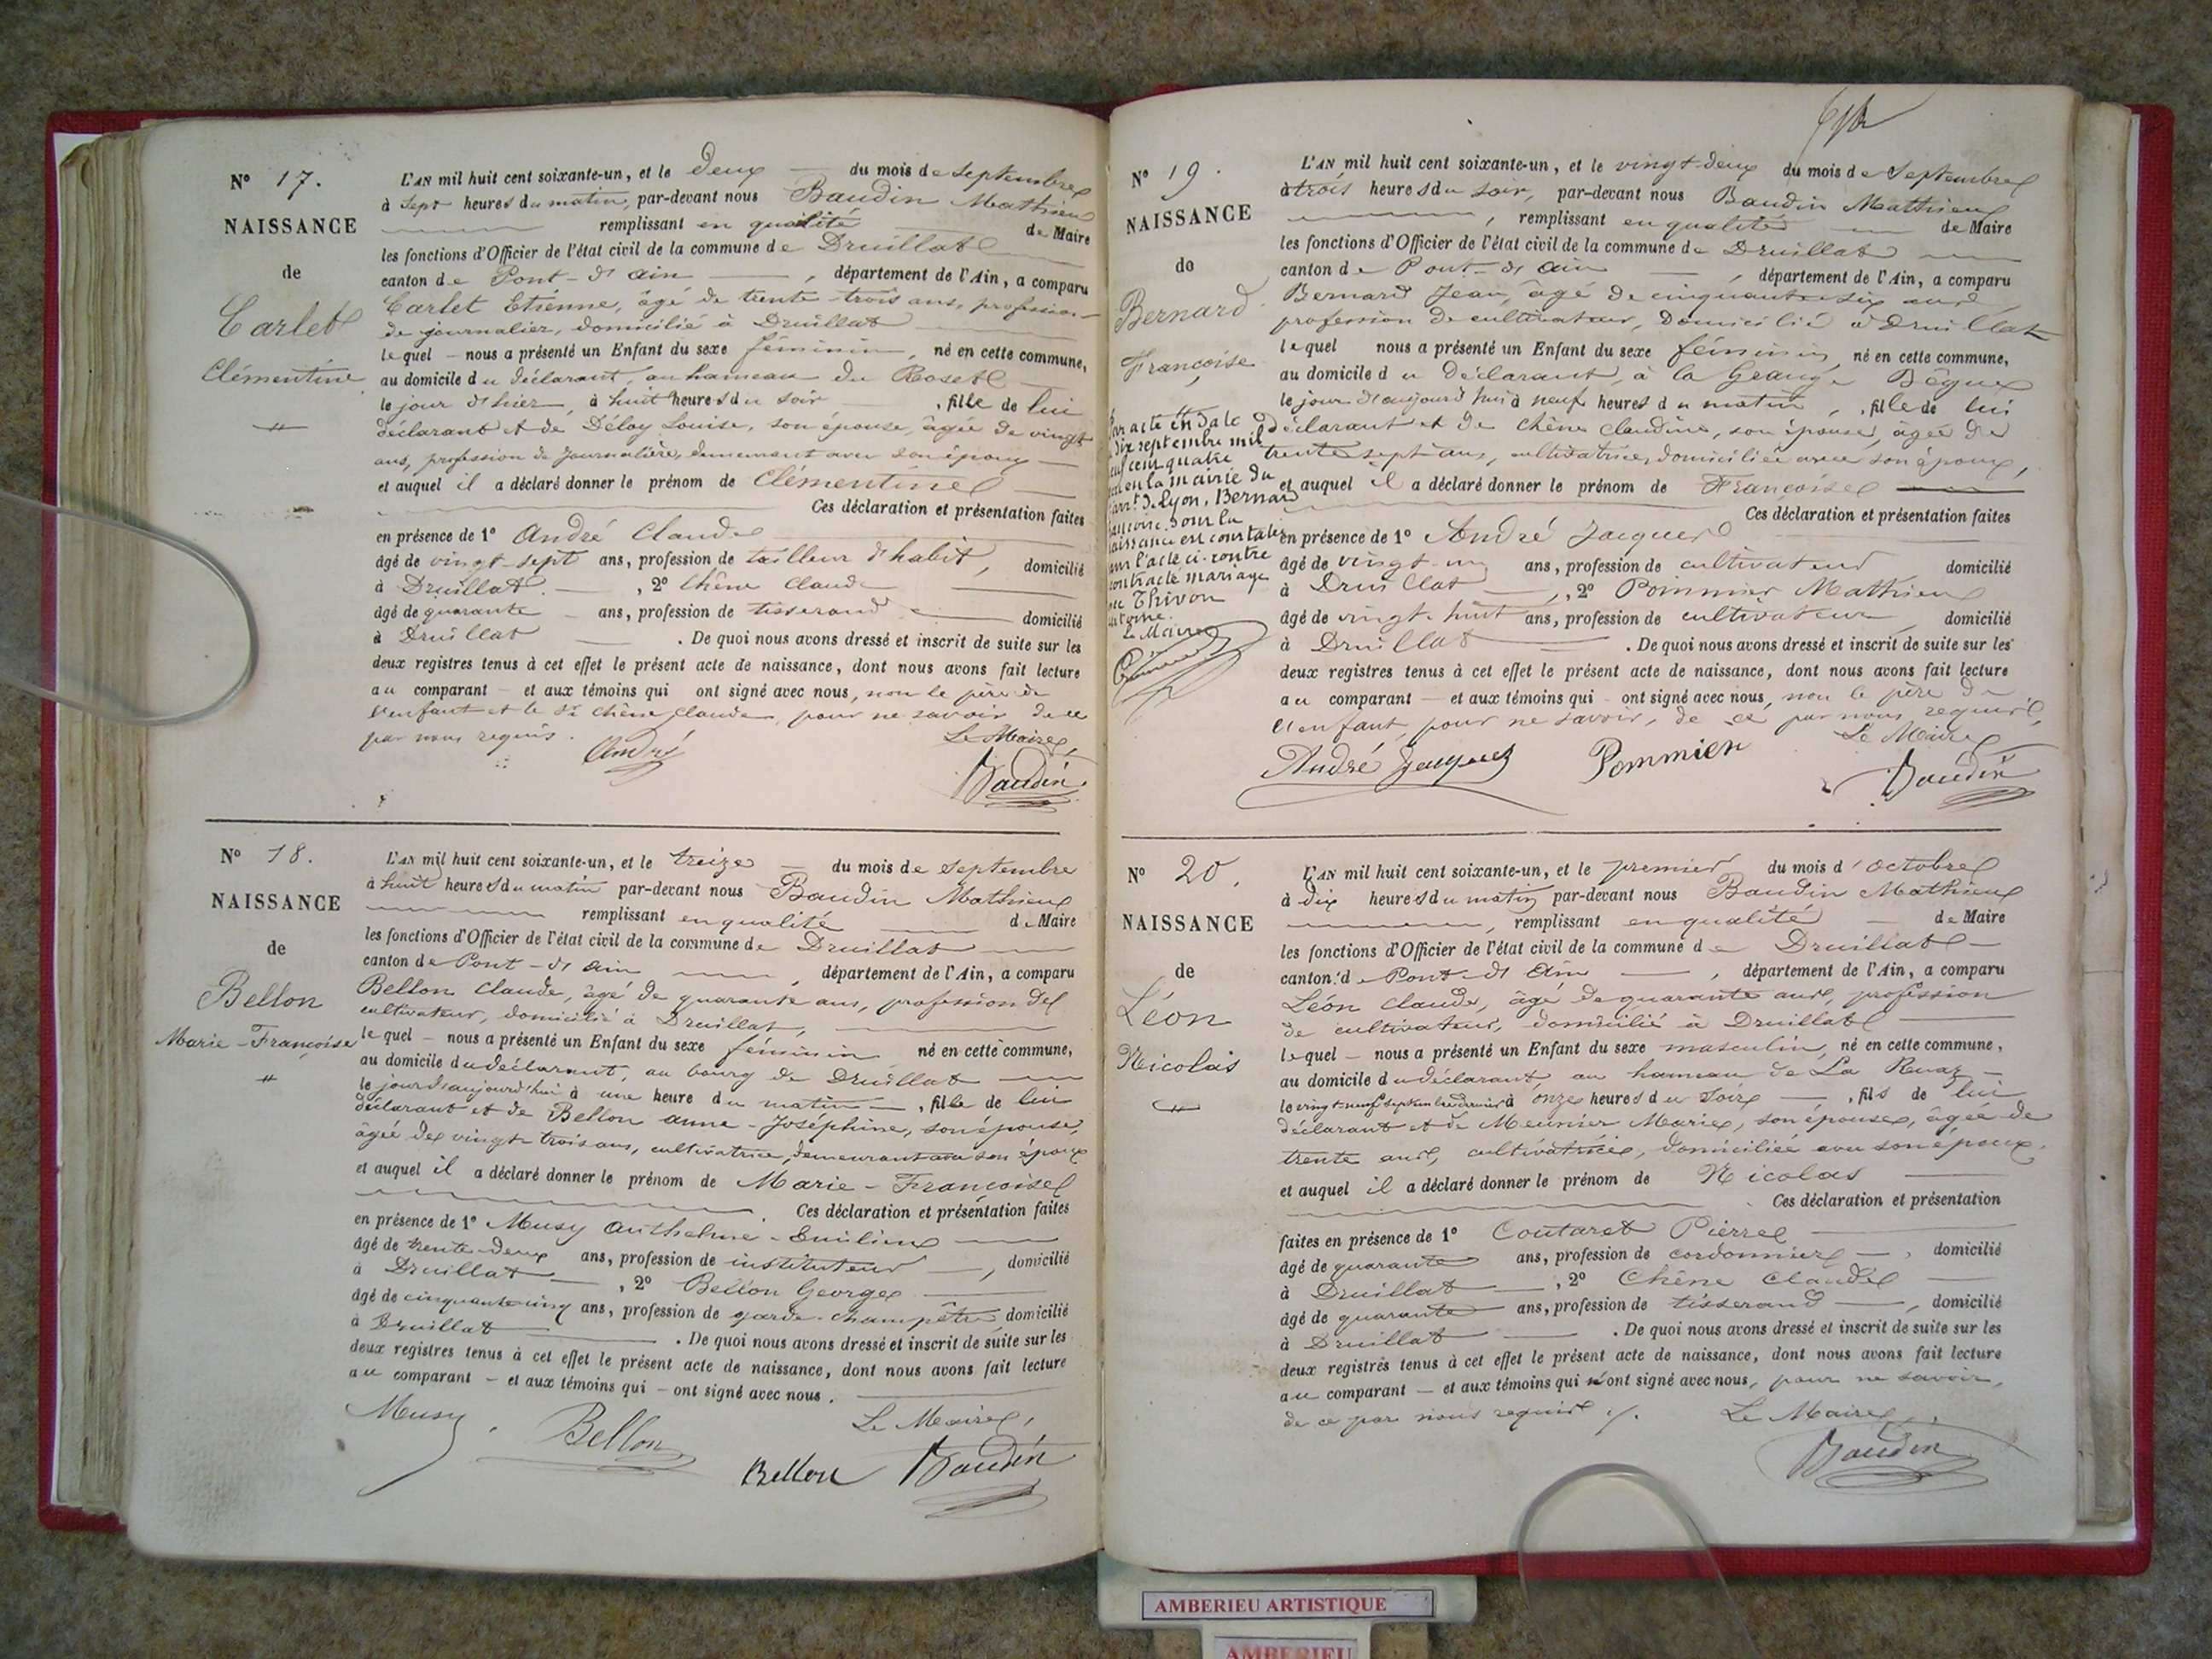 N° 17.
NAISSANCE
de
Carlet
Clémentine
L'AN mil huit cent soixante-un, et le deux du mois de septembre
à sept heures du matin, par-devant nous Baudin Mathieu
remplissant en qualité de Maire
les fonctions d'Officier de l'état civil de la commune de Druillat
canton de Pont-d'ain, département de l'Ain, a comparu
Carlet Etienne, âgé de trente-trois ans, profession
de journalier, domicilié à Druillat
lequel nous a présenté un Enfant du sexe féminin, né en cette commune,
au domicile du déclarant, au hameau du Roset
le jour d'hier, à huit heures du soir, fille de lui
déclarant et de Déloy Louise, son épouse, âgée de vingt
ans, profession de journalière, demeurant avec son époux
et auquel il a déclaré donner le prénom de Clémentine
Ces déclaration et présentation faites
en présence de 1° André Claude
âgé de vingt-sept ans, profession de tailleur d'habit, domicilié
à Druillat. , 2° Chêne Claude
âgé de quarante ans, profession de tisserand domicilié
à Druillat . De quoi nous avons dressé et inscrit de suite sur les
deux registres tenus à cet effet le présent acte de naissance, dont nous avons fait lecture
au comparant et aux témoins qui ont signé avec nous, non le père de
l'enfant et le Sr. Chêne Claude, pour ne savoir de ce
par nous requis.
Le Maire,
André
Baudin
N° 18.
NAISSANCE
de
Bellon
Marie-Françoise
L'AN mil huit cent soixante-un, et le treize du mois de septembre
à huit heures du matin par-devant nous Baudin Mathieu
remplissant en qualité de Maire
les fonctions d'Officier de l'état civil de la commune de Druillat
canton de Pont-d'ain département de l'Ain, a comparu
Bellon Claude, âgé de quarante ans, profession de
cultivateur, domicilié à Druillat,
lequel nous a présenté un Enfant du sexe féminin né en cette commune,
au domicile du déclarant, au bourg de Druillat
le jour d'aujourd'hui à une heure du matin, fille de lui
déclarant et de Bellon anne-Joséphine, son épouse,
âgée de vingt-trois ans, cultivatrice, demeurant avec son époux
et auquel il a déclaré donner le prénom de Marie-Françoise
Ces déclaration et présentation faites
en présence de 1° Musy Anthelme-Emilien
âgé de trente-deux ans, profession de instituteur, domicilié
à Druillat , 2° Bellon Georges
âgé de cinquante-cinq ans, profession de garde-champêtre domicilié
à Druillat . De quoi nous avons dressé et inscrit de suite sur les
deux registres tenus à cet effet le présent acte de naissance, dont nous avons fait lecture
au comparant et aux témoins qui ont signé avec nous.
Le Maire,
Musy
Bellon
Bellon
Baudin
N° 19.
NAISSANCE
de
Bernard
Françoise
acte en date
septembre mil
cent quatre
en la mairie du
arrt. de Lyon, Bernard
dont la
naissance est constatée
l'acte ci-contre
contracté mariage
Thivon
Le Maire
L'AN mil huit cent soixante-un, et le vingt-deux du mois de Septembre
à trois heures du soir, par-devant nous Baudin Mathieu
, remplissant en qualité de Maire
les fonctions d'Officier de l'état civil de la commune de Druillat
canton de Pont-d'ain , département de l'Ain, a comparu
Bernard Jean, âgé de cinquante-six ans,
profession de cultivateur, domicilié à Druillat
lequel nous a présenté un Enfant du sexe féminin né en cette commune,
au domicile du déclarant, à la Grange Bègue
le jour d'aujourd'hui à neuf heures du matin, fille de lui
déclarant et de Chêne Claudine, son épouse, âgée de
trente-sept ans, cultivatrice, domiciliée avec son époux,
et auquel il a déclaré donner le prénom de Françoise
Ces déclaration et présentation faites
en présence de 1° André Jacques
âgé de vingt-un ans, profession de cultivateur domicilié
à Druillat , 2° Pommier Mathieu
âgé de vingt-huit ans, profession de cultivateur domicilié
à Druillat . De quoi nous avons dressé et inscrit de suite sur les
deux registres tenus à cet effet le présent acte de naissance, dont nous avons fait lecture
au comparant et aux témoins qui ont signé avec nous, non le père de
l'enfant, pour ne savoir, de ce par nous requis,
Le Maire
André Jacques
Pommier
Baudin
N° 20.
NAISSANCE
de
Léon
Nicolas
L'AN mil huit cent soixante-un, et le premier du mois d'octobre
à dix heures du matin par-devant nous Baudin Mathieu
, remplissant en qualité de Maire
les fonctions d'Officier de l'état civil de la commune de Druillat
canton de Pont-d'Ain , département de l'Ain, a comparu
Léon Claude, âgé de quarante ans, profession
de cultivateur, domicilié à Druillat
lequel nous a présenté un Enfant du sexe masculin, né en cette commune,
au domicile du déclarant, au hameau de La Ruaz
le vingt-neuf septembre dernier à onze heures du soir, fils de lui
déclarant et de Meunier Marie, son épouse, âgée de
trente ans, cultivatrice, domiciliée avec son époux.
et auquel il a déclaré donner le prénom de Nicolas
Ces déclaration et présentation
faites en présence de 1° Coutaret Pierre
âgé de quarante ans, profession de cordonnier, domicilié
à Druillat , 2° Chêne Claude
âgé de quarante ans, profession de tisserand, domicilié
à Druillat . De quoi nous avons dressé et inscrit de suite sur les
deux registres tenus à cet effet le présent acte de naissance, dont nous avons fait lecture
au comparant et aux témoins qui n'ont signé avec nous, pour ne savoir,
de ce par nous requis ./.
Le Maire,
Baudin
AMBERIEU ARTISTIQUE
AMBERIEU